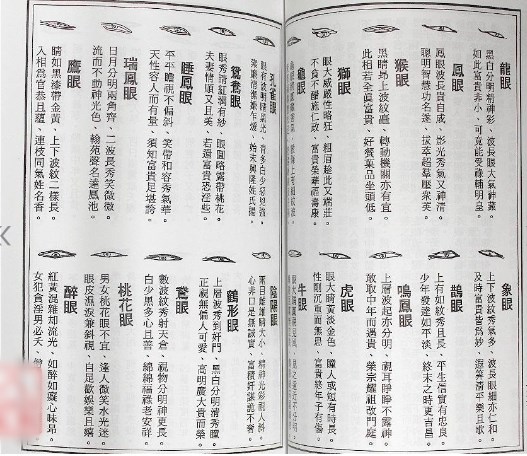 龍眼
黑白分明精神彩、波長眼大氣神藏。
如此富貴非小、可竟能受祿輔明皇。
鳳眼
鳳眼波長貴自成、影光秀氣又神清。
聰明智慧功名遂、拔萃超羣壓衆英。
猴眼
黑睛昂上波紋矗、轉動機關亦有宜。
此相若全眞富貴、好餐菓品坐頭低。
獅眼
眼大威嚴性略狂、粗眉趁此又端莊。
不貪不酷施仁政、富貴榮華福壽康。
龜眼
孔雀眼
鴛鴦眼
眼秀睛紅潤有紗、眼圓略露帶桃花。
夫妻情順又且美、若還富貴恐淫些。
睡鳳眼
平平瞻視不偏斜、笑帶和容秀氣華。
天性容人而有量、須知富貴足堪誇。
瑞鳳眼
日月分明兩角齊、二波長秀笑微微。
流而不動神光色、翰苑聲名達鳳池。
鷹眼
睛如黑漆帶金黃、上下波紋一樣長。
入相為官恭且蘊、連枝同氣姓名香。
象眼
上下波紋秀氣多、波長眼細亦仁和。
及時富貴皆為妙、遐算清平樂且歌。
鵲眼
上有如紋秀且長、平生信實有忠良。
少年發達如平淡、終末之時更吉昌。
鳴鳳眼
上層波起亦分明、視耳睜睜不露神。
敢取中年而遇貴、榮宗耀祖改門庭。
虎眼
眼大睛黃淡金色、瞳人或短有時長。
性剛沉重而無患、富貴終年子有傷。
牛眼
陰陽眼
兩目雌雄睛大小、精神光彩視人斜。
心非口是無誠實、富積奸謀詭不奢。
鶴形眼
上層波秀到奸門、黑白分明清秀瞳。
正視無偏人可愛、高明廣大貴而榮。
鵞眼
數波紋秀射天倉、視物分明神更長。
白少黑多心且善、綿綿福祿老安祥。
桃花眼
男女桃花眼不宜、逢人微笑水光迷。
眼皮濕淚兼斜視、自足歡娛樂且嬉。
醉眼
紅黃混雜却流光、如醉如癡心昧昂。
女犯貪淫男必夭、